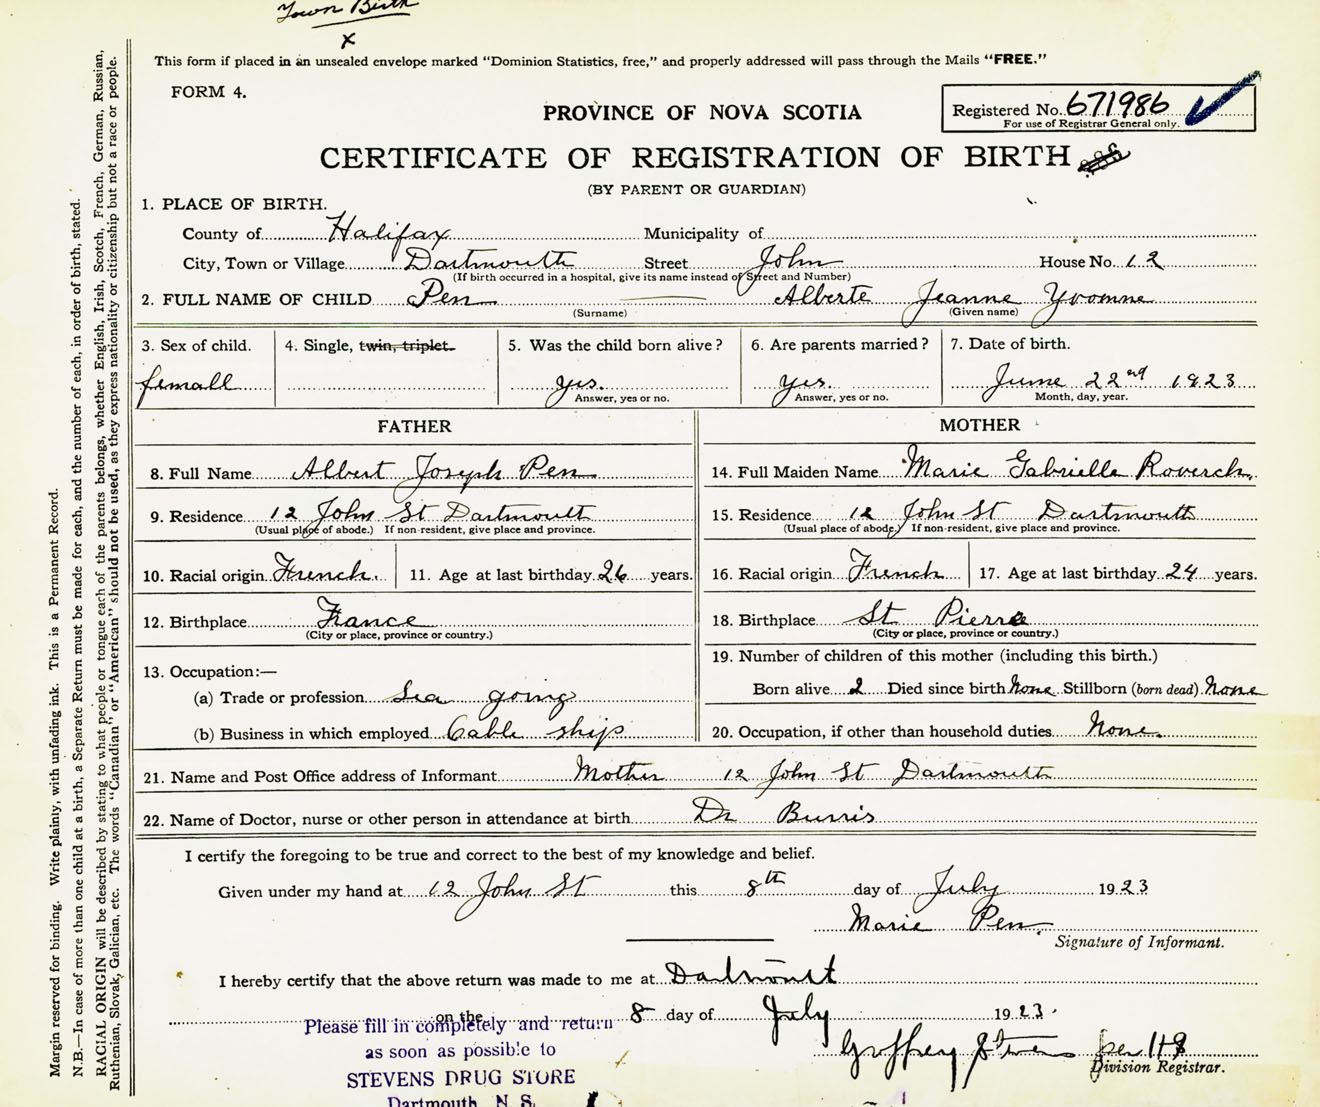 Town Birth
x
This form if placed in an unsealed envelope marked "Dominion Statistics, free," and properly addressed will pass through the Mails "FREE."
FORM 4.
PROVINCE OF NOVA SCOTIA
Registered No. 671986
For use of Registrar General only.
CERTIFICATE OF REGISTRATION OF BIRTH
(BY PARENT OR GUARDIAN)
1. PLACE OF BIRTH.
County of Halifax Municipality of
City, Town or Village Dartmouth Street John House No. 12
(If birth occurred in a hospital, give its name instead of Street and Number)
2. FULL NAME OF CHILD Pen Alberte Jeanne Yvomne
(Surname) (Given name)
3. Sex of child. 4. Single, twin, triplet. 5. Was the child born alive? 6. Are parents married? 7. Date of birth.
femall yes. yes. June 22nd 1923
Answer, yes or no. Answer, yes or no. Month, day, year.
FATHER MOTHER
8. Full Name Albert Joseph Pen 14. Full Maiden Name Marie Gabrielle
9. Residence 12 John St Dartmouth 15. Residence 12 John St Dartmouth
(Usual place of abode.) If non-resident, give place and province. (Usual place of abode.) If non-resident, give place and province.
10. Racial origin French. 11. Age at last birthday 26 years. 16. Racial origin French 17. Age at last birthday 24 years.
12. Birthplace France 18. Birthplace St Pierre
(City or place, province or country.) (City or place, province or country.)
13. Occupation:— 19. Number of children of this mother (including this birth.)
(a) Trade or profession Sea going Born alive 2 Died since birth None Stillborn (born dead) None
(b) Business in which employed Cable ship 20. Occupation, if other than household duties None.
21. Name and Post Office address of Informant Mother 12 John St Dartmouth
22. Name of Doctor, nurse or other person in attendance at birth Dr Burris
I certify the foregoing to be true and correct to the best of my knowledge and belief.
Given under my hand at 12 John St this 8th day of July 1923
Marie Pen.
Signature of Informant.
I hereby certify that the above return was made to me at Dartmouth
on the 8 day of July 1923.
Please fill in completely and return
as soon as possible to
STEVENS DRUG STORE
Dartmouth, N. S.
Geoffrey Stevens per
Division Registrar.
Margin reserved for binding. Write plainly, with unfading ink. This is a Permanent Record.
N.B.—In case of more than one child at a birth, a Separate Return must be made for each, and the number of each, in order of birth, stated.
RACIAL ORIGIN will be described by stating to what people or tongue each of the parents belongs, whether English, Irish, Scotch, French, German, Russian,
Ruthenian, Slovak, Galician, etc. The words "Canadian" or "American" should not be used, as they express nationality or citizenship but not a race or people.